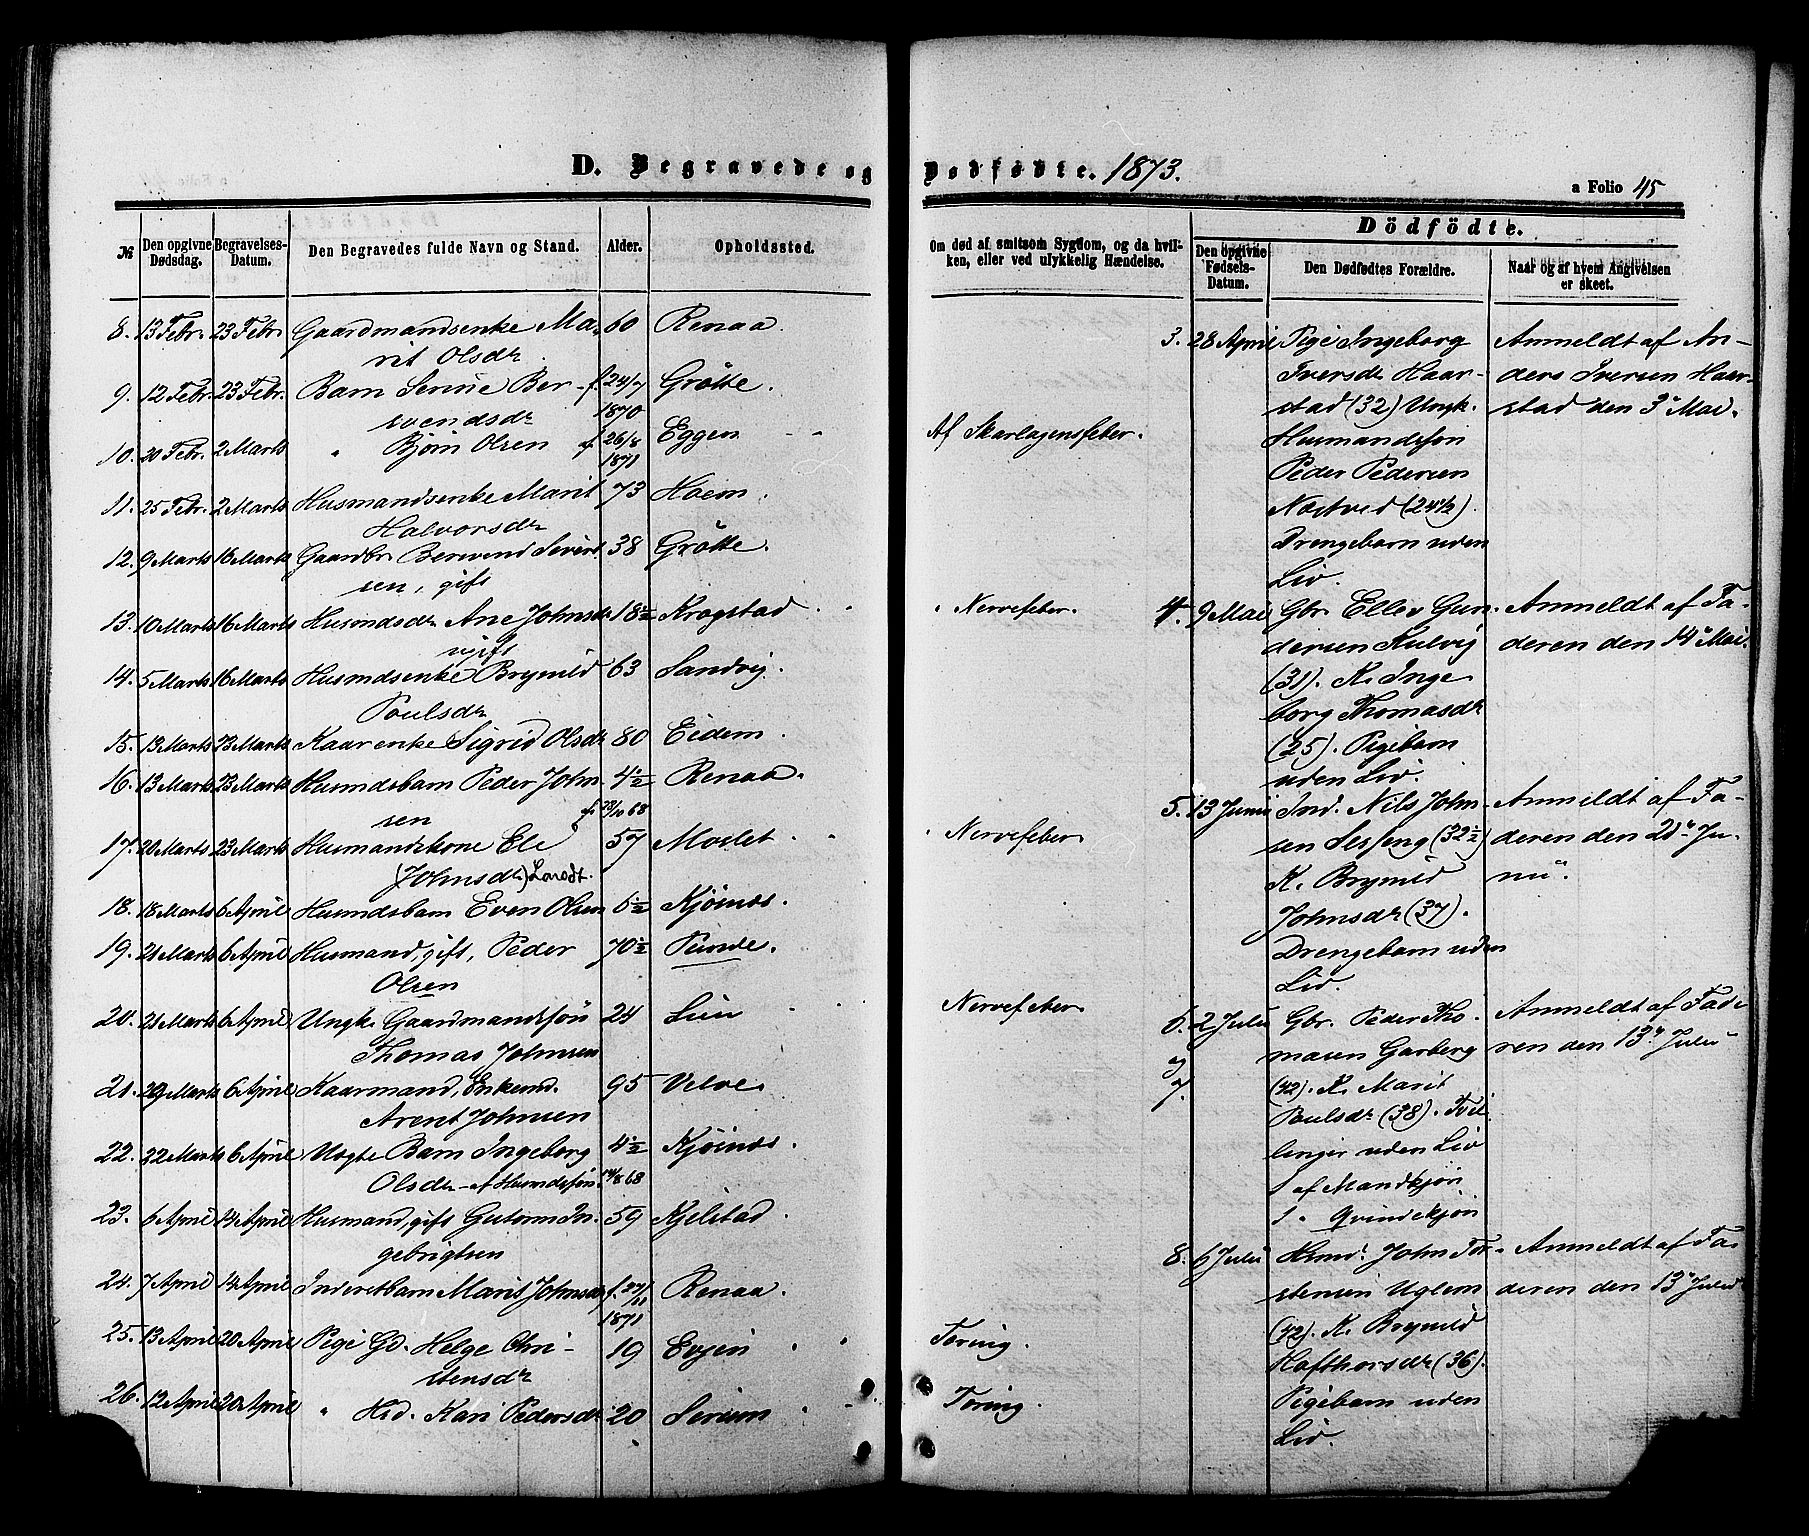 D. Begravede og Dødfødte. 1873.
a Folio 45
№ Den opgivne Dødsdag. Begravelses-Datum. Den Begravedes fulde Navn og Stand. Alder. Opholdssted.
Om død af smitsom Sygdom, og da hvilken, eller ved ulykkelig Hændelse.
Dödfödte.
Den opgivne Fødsels-Datum. Den Dødfødtes Forældre. Naar og af hvem Angivelsen er skeet.
8. 13 Febr. 23 Febr. Gaardmandsenke Ma- 60 Renaa.
rit Olsdr.
9. 12 Febr. 23 Febr. Barn Serine Ber- f. 24/7 Grötte.
svendsdr 1870
10. 20 Febr. 2 Marts " Bjørn Olsen f. 26/8 Eggen Af Skarlagensfeber.
1871
11. 25 Febr. 2 Marts Husmandsenke Marit 73 Hoem.
Halvorsdr
12. 9 Marts 16 Marts Gaardbr. Bersvend Sivert 38 Grötte.
sen, gift
13. 10 Marts 16 Marts Husmdsdr Ane Johnsdr 18½ Krogstad " Nervefeber.
ugift
14. 5 Marts 16 Marts Husmdsenke Brynild 63 Sandvig.
Poulsdr
15. 13 Marts 23 Marts Kaarenke Sigrid Olsdr 80 Eidem.
16. 13 Marts 23 Marts Husmdsbarn Peder John- 4½ Renaa.
sen f. 23/10 68
17. 20 Marts 23 Marts Husmandskone Ele 57 Moslet " Nervefeber
(Johnsdr)
18. 18 Marts 6 April Husmdsbarn Even Olsen 6½ Kjösnæs.
19. 21 Marts 6 April Husmand, gift, Peder 70½ Tunde.
Olsen
20. 21 Marts 6 April Ungk. Gaardmandssön 24 Lien Nervefeber
Thomas Johnsen
21. 29 Marts 6 April Kaarmand, Enkemd. 95 Velve.
Arent Johnsen
22. 22 Marts 6 April Uægte Barn Ingeborg 4½ Kjösnæs.
Olsdr - af Husmdssön. 14/8 68
23. 6 April 14 April Husmand, gift Gutorm In- 59 Kjelstad
gebrigtsen
24. 7 April 14 April Inderstbarn Marit Johnsdr f. 27/11 Renaa.
1871
25. 13 April 20 April Pige Gd. Helge Chri- 19 Evjen Tæring.
stensdr
26. 12 April 20 April " Hsd. Kari Pedersdr 20 Tæring.
3. 28 April Pige Ingeborg Anmeldt af An-
Iversdr Haar- ders Iversen Haar-
stad (32) Ungk. stad den 3' Mai.
Husmandssøn
Peder Pedersen
Næstved (24½).
Drengebarn uden
Liv.
4. 9 Mai Gbr. Ellev Gun- Anmeldt af Fa-
dersen Kulvig deren den 14' Mai.
(31). K. Inge
borg Thomasdr
(25). Pigebarn
uden Liv.
5. 13 Juni Ind. Nils John- Anmeldt af Fa-
sen Sesseng (32½) deren den 21' Ju-
K. Brynild nii.
Johnsdr (37).
Drengebarn uden
Liv.
6. 2 Julii Gbr. Peder Tho- Anmeldt af Fade
og masen Garberg ren den 13' Julii
7. (42). K. Marit
Poulsdr (38). Tvil
linger uden Liv
1 af Mandkjön
1 " Qvindekjön
8. 6 Julii Hsmd. John Tor- Anmeldt af Fa-
stensen Uglem deren den 13' Julii
(42). K. Brynild
Hafthorsdr (36).
Pigebarn uden
Liv.